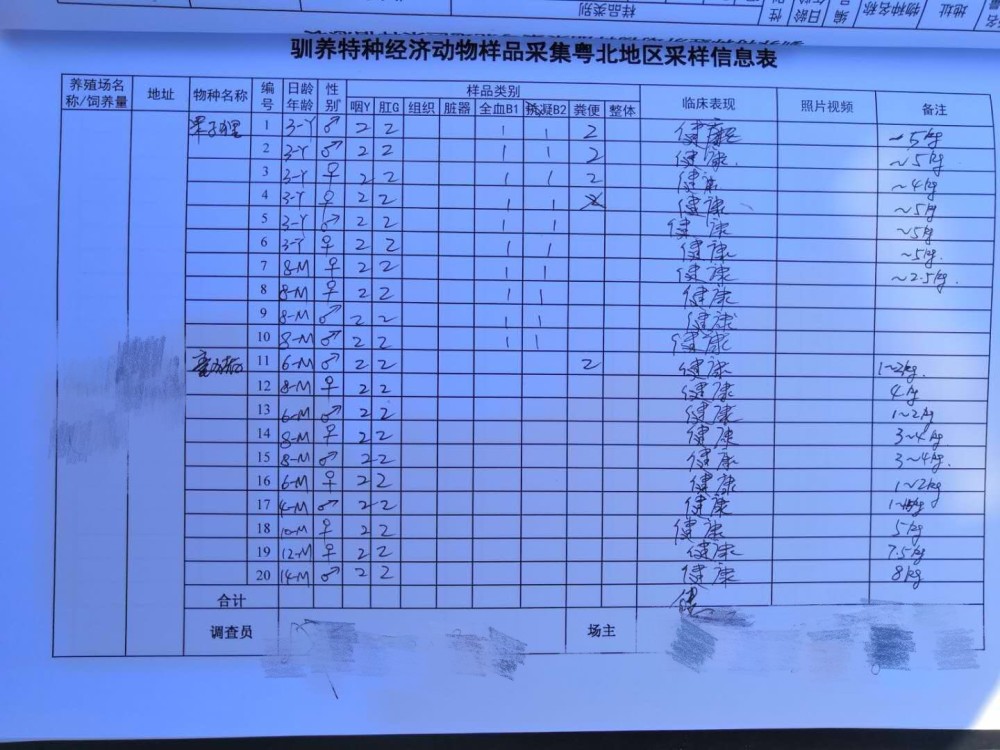 样品类别
物种名称
地址
驯养特种经济动物样品采集粤北地区采样信息表
养殖场名称/饲养量 地址 物种名称 编号 日龄年龄 性别 样品类别 临床表现 照片视频 备注
咽Y 肛G 组织 脏器 全血B1 抗凝B2 粪便 整体
果子狸 1 3-Y ♂ 2 2 1 1 2 健康 ~5kg
2 3-Y ♂ 2 2 1 1 2 健康 ~5kg
3 3-Y ♀ 2 2 1 1 2 健康 ~4kg
4 3-Y ♀ 2 2 1 1 健康 ~5kg
5 3-Y ♂ 2 2 1 1 健康 ~5kg
6 3-Y ♀ 2 2 1 1 健康 ~5kg.
7 8-M ♀ 2 2 1 1 健康 ~2.5kg.
8 8-M ♀ 2 2 1 1 健康
9 8-M ♂ 2 2 1 1 健康
10 8-M ♂ 2 2 1 1 健康
11 6-M ♂ 2 2 2 健康 1~2kg.
12 8-M ♀ 2 2 健康 4kg
13 6-M ♂ 2 2 健康 1~2kg
14 8-M ♀ 2 2 健康 3~4kg
15 8-M ♂ 2 2 健康 3~4kg.
16 6-M ♀ 2 2 健康 1~2kg
17 4-M ♂ 2 2 健康
18 10-M ♀ 2 2 健康 5kg
19 12-M ♀ 2 2 健康 7.5kg
20 14-M ♂ 2 2 健康 8kg
合计 健
调查员 场主